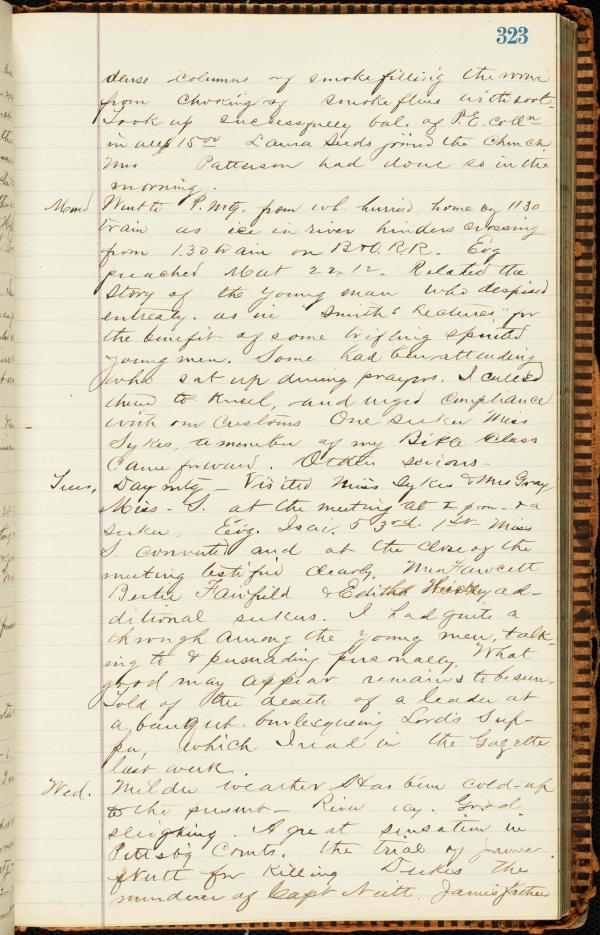 323
dense columns of smoke filling the room
from choking of smoke flue with soot.
Took up successfully bal. of P.E. Colln
in all 15 00 Laura Seeds joined the Church
Mrs Patterson had done so in the
morning.
Mond Went to P. Mtg. from wh. hurried home by 11 30
train as ice in river hinders crossing
from 1.30 train on B & O. R.R. Evg
preached Mat 22, 12. Related the
story of the young man who despised
entreaty. as in "Smith's Lectures" for
the benefit of some trifling spirited
young men. Some had been attending
who sat up during prayers. I called
them to kneel, and urged compliance
with our customs One seeker Miss
Sykes, a member of my Bible Class
Came forward. Others serious-
Tues, Day mtg - Visited Miss Sykes & Mrs Gray
Miss. S. at the meeting at 2 p.m. & a
seeker, Evg. Isai, 53rd. 1st Miss
S converted and at the close of the
meeting testified clearly. Mrs Fawcett
Bertie Fairfield & Editha ad-
ditional seekers. I had quite a
through among the young men, talk-
ing to & persuading personally. What
good may appear remains to be seen.
Told of the death of a leader at
a banquet. burlesqueing Lord's Sup-
per, which I read in the Gazette
last week.
Wed. Milder weather Has been cold - up
to the present - River icy. Good
sleighing. A great sensation in
Pittsbg Courts. the trial of James
Nutt for killing Dukes the
murderer of Capt Nutt. James father